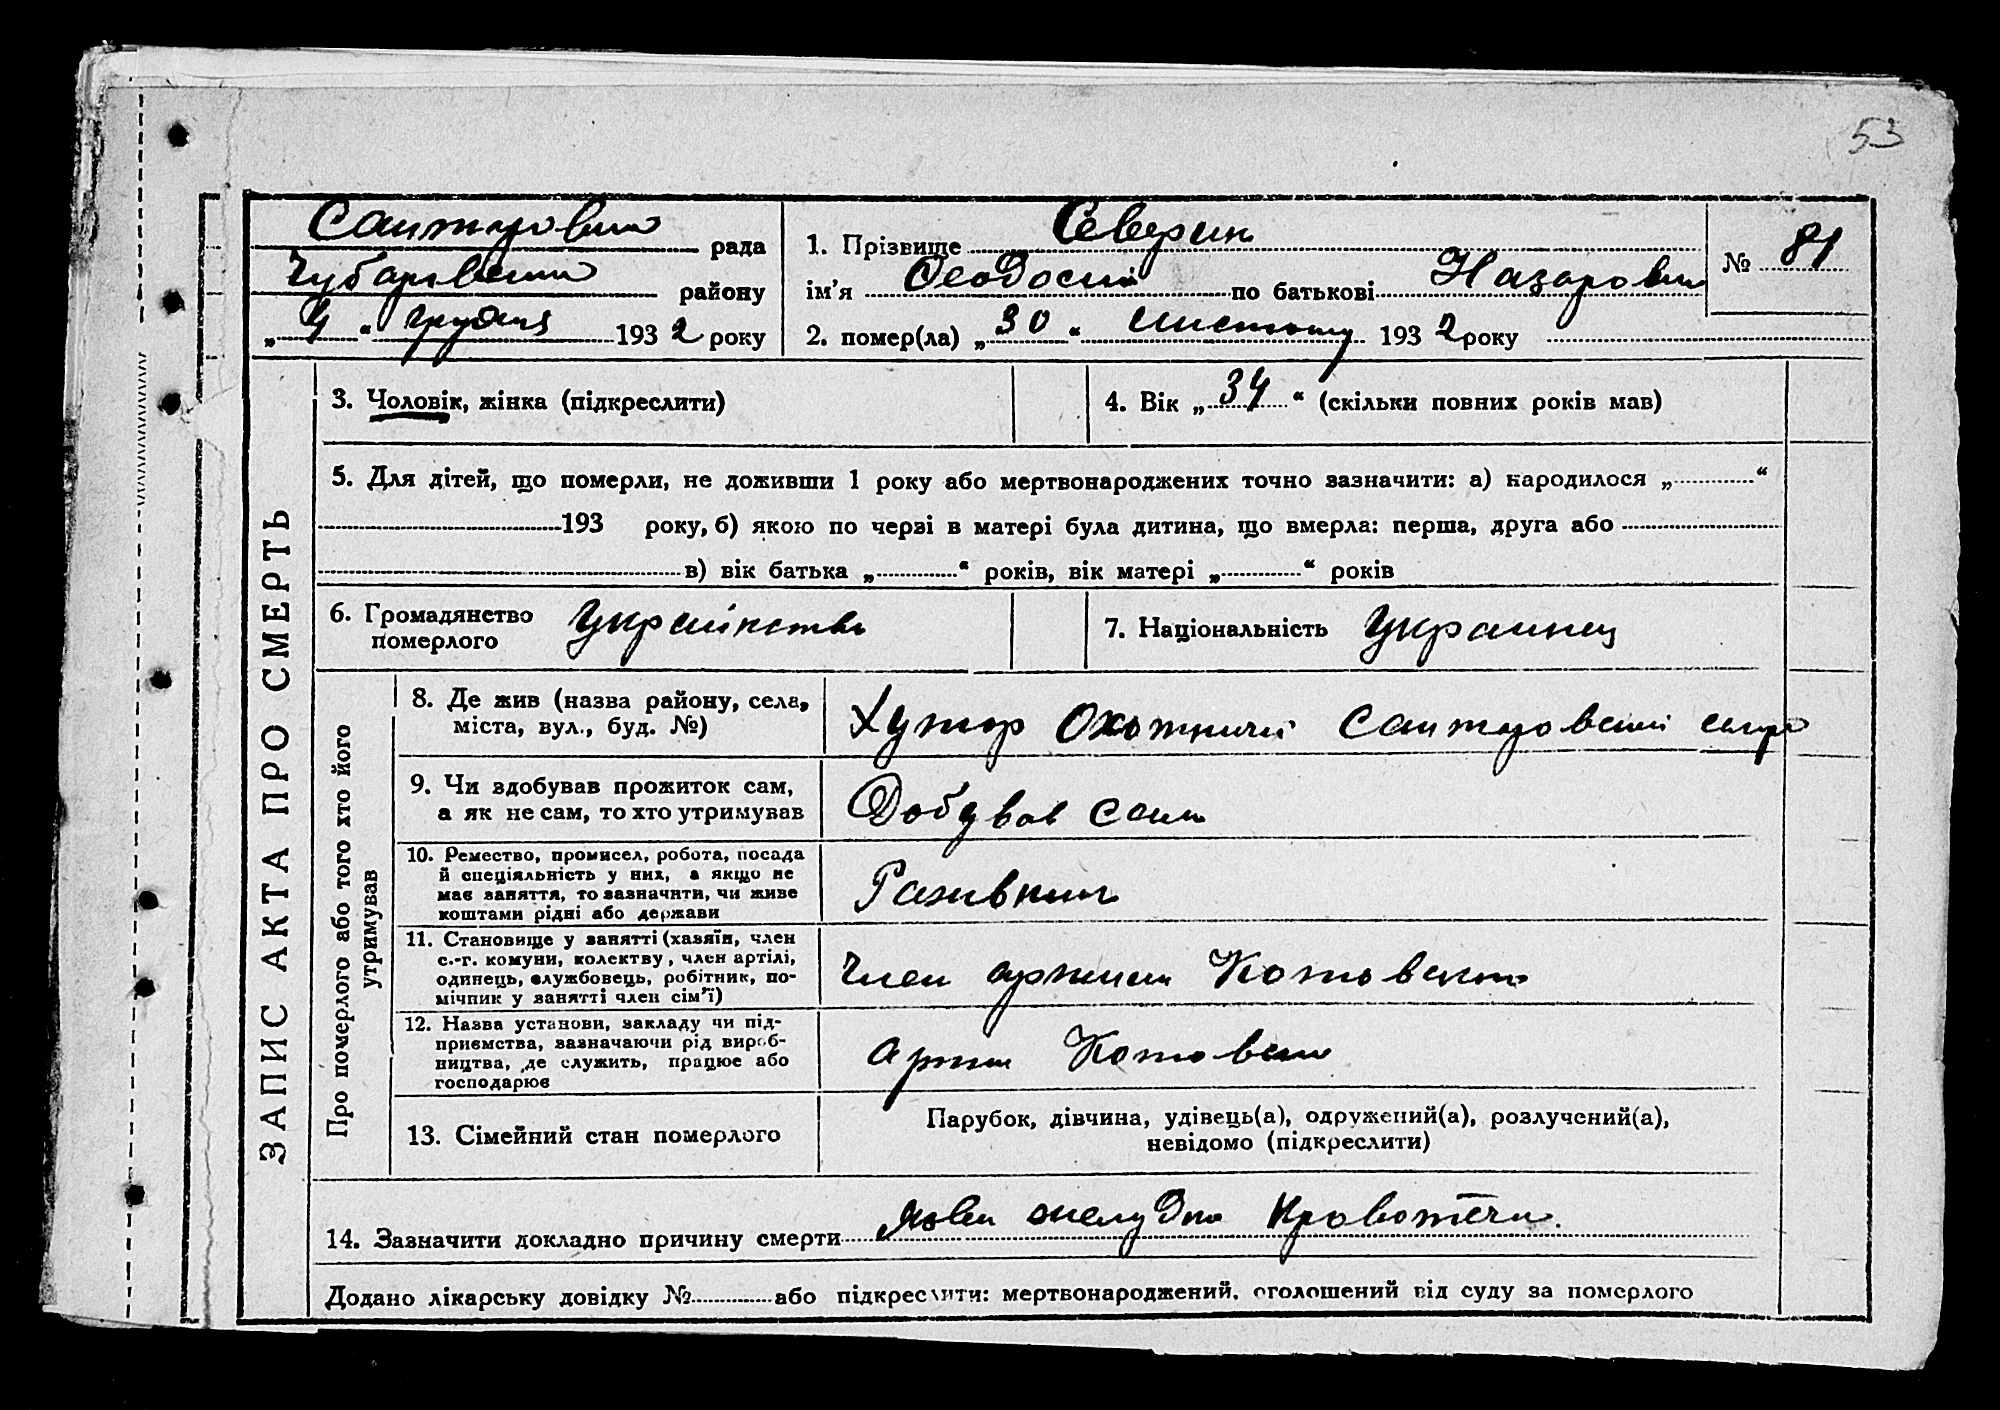 53
рада
району
„ 4 “ грудня 1932 року
1. Прізвище Северин
ім'я Феодосий по батькові Назарович
№ 81
2. помер(ла) „ 30 “ листопаду 1932 року
ЗАПИС АКТА ПРО СМЕРТЬ
3. Чоловік, жінка (підкреслити)
4. Вік „ 34 “ (скільки повних років мав)
5. Для дітей, що померли, не доживши 1 року або мертвонароджених точно зазначити: а) народилося „ “
193 року, б) якою по черзі в матері була дитина, що вмерла: перша, друга або
в) вік батька „ “ років, вік матері „ “ років
6. Громадянство
померлого
7. Національність Украинец
Про померлого або того хто його
утримував
8. Де жив (назва району, села,
міста, вул., буд. №)
Хутор Охотничий
9. Чи здобував прожиток сам,
а як не сам, то хто утримував
Добував сам
10. Ремество, промисел, робота, посада
й спеціяльність у них, а якщо не
має заняття, то зазначити, чи живе
коштами рідні або держави
11. Становище у занятті (хазяїн, член
с.-г. комуни, колектву, член артілі,
одинець, службовець, робітник, по-
мічник у занятті член сім'ї)
Член артили Котовского
12. Назва установи, закладу чи під-
приємства, зазначаючи рід вироб-
ництва, де служить, працює або
господарює
13. Сімейний стан померлого
Парубок, дівчина, удівець(а), одружений(а), розлучений(а),
невідомо (підкреслити)
14. Зазначити докладно причину смерти Язва желудка
Додано лікарську довідку № або підкреслити: мертвонароджений, оголошений від суду за померлого